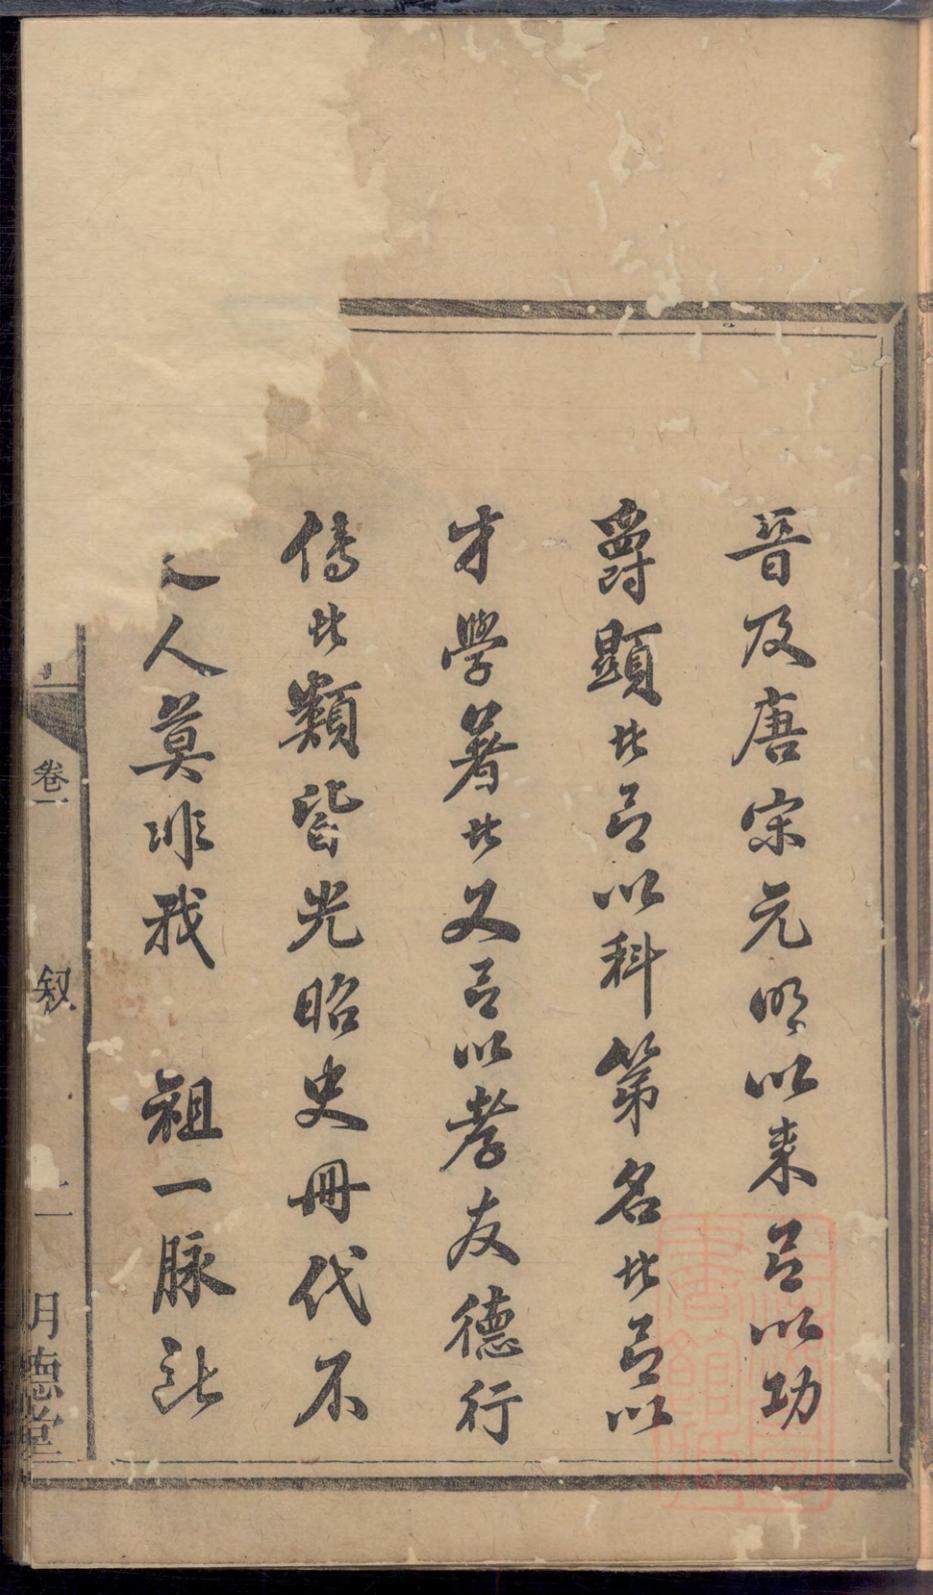 晉及唐宋元明以来有以功
爵顕者有以科第名者有以
才學著者又有以孝友德行
傳者類皆光昭史冊代不
人莫非我 祖一脉
卷一 叙 二 明德堂